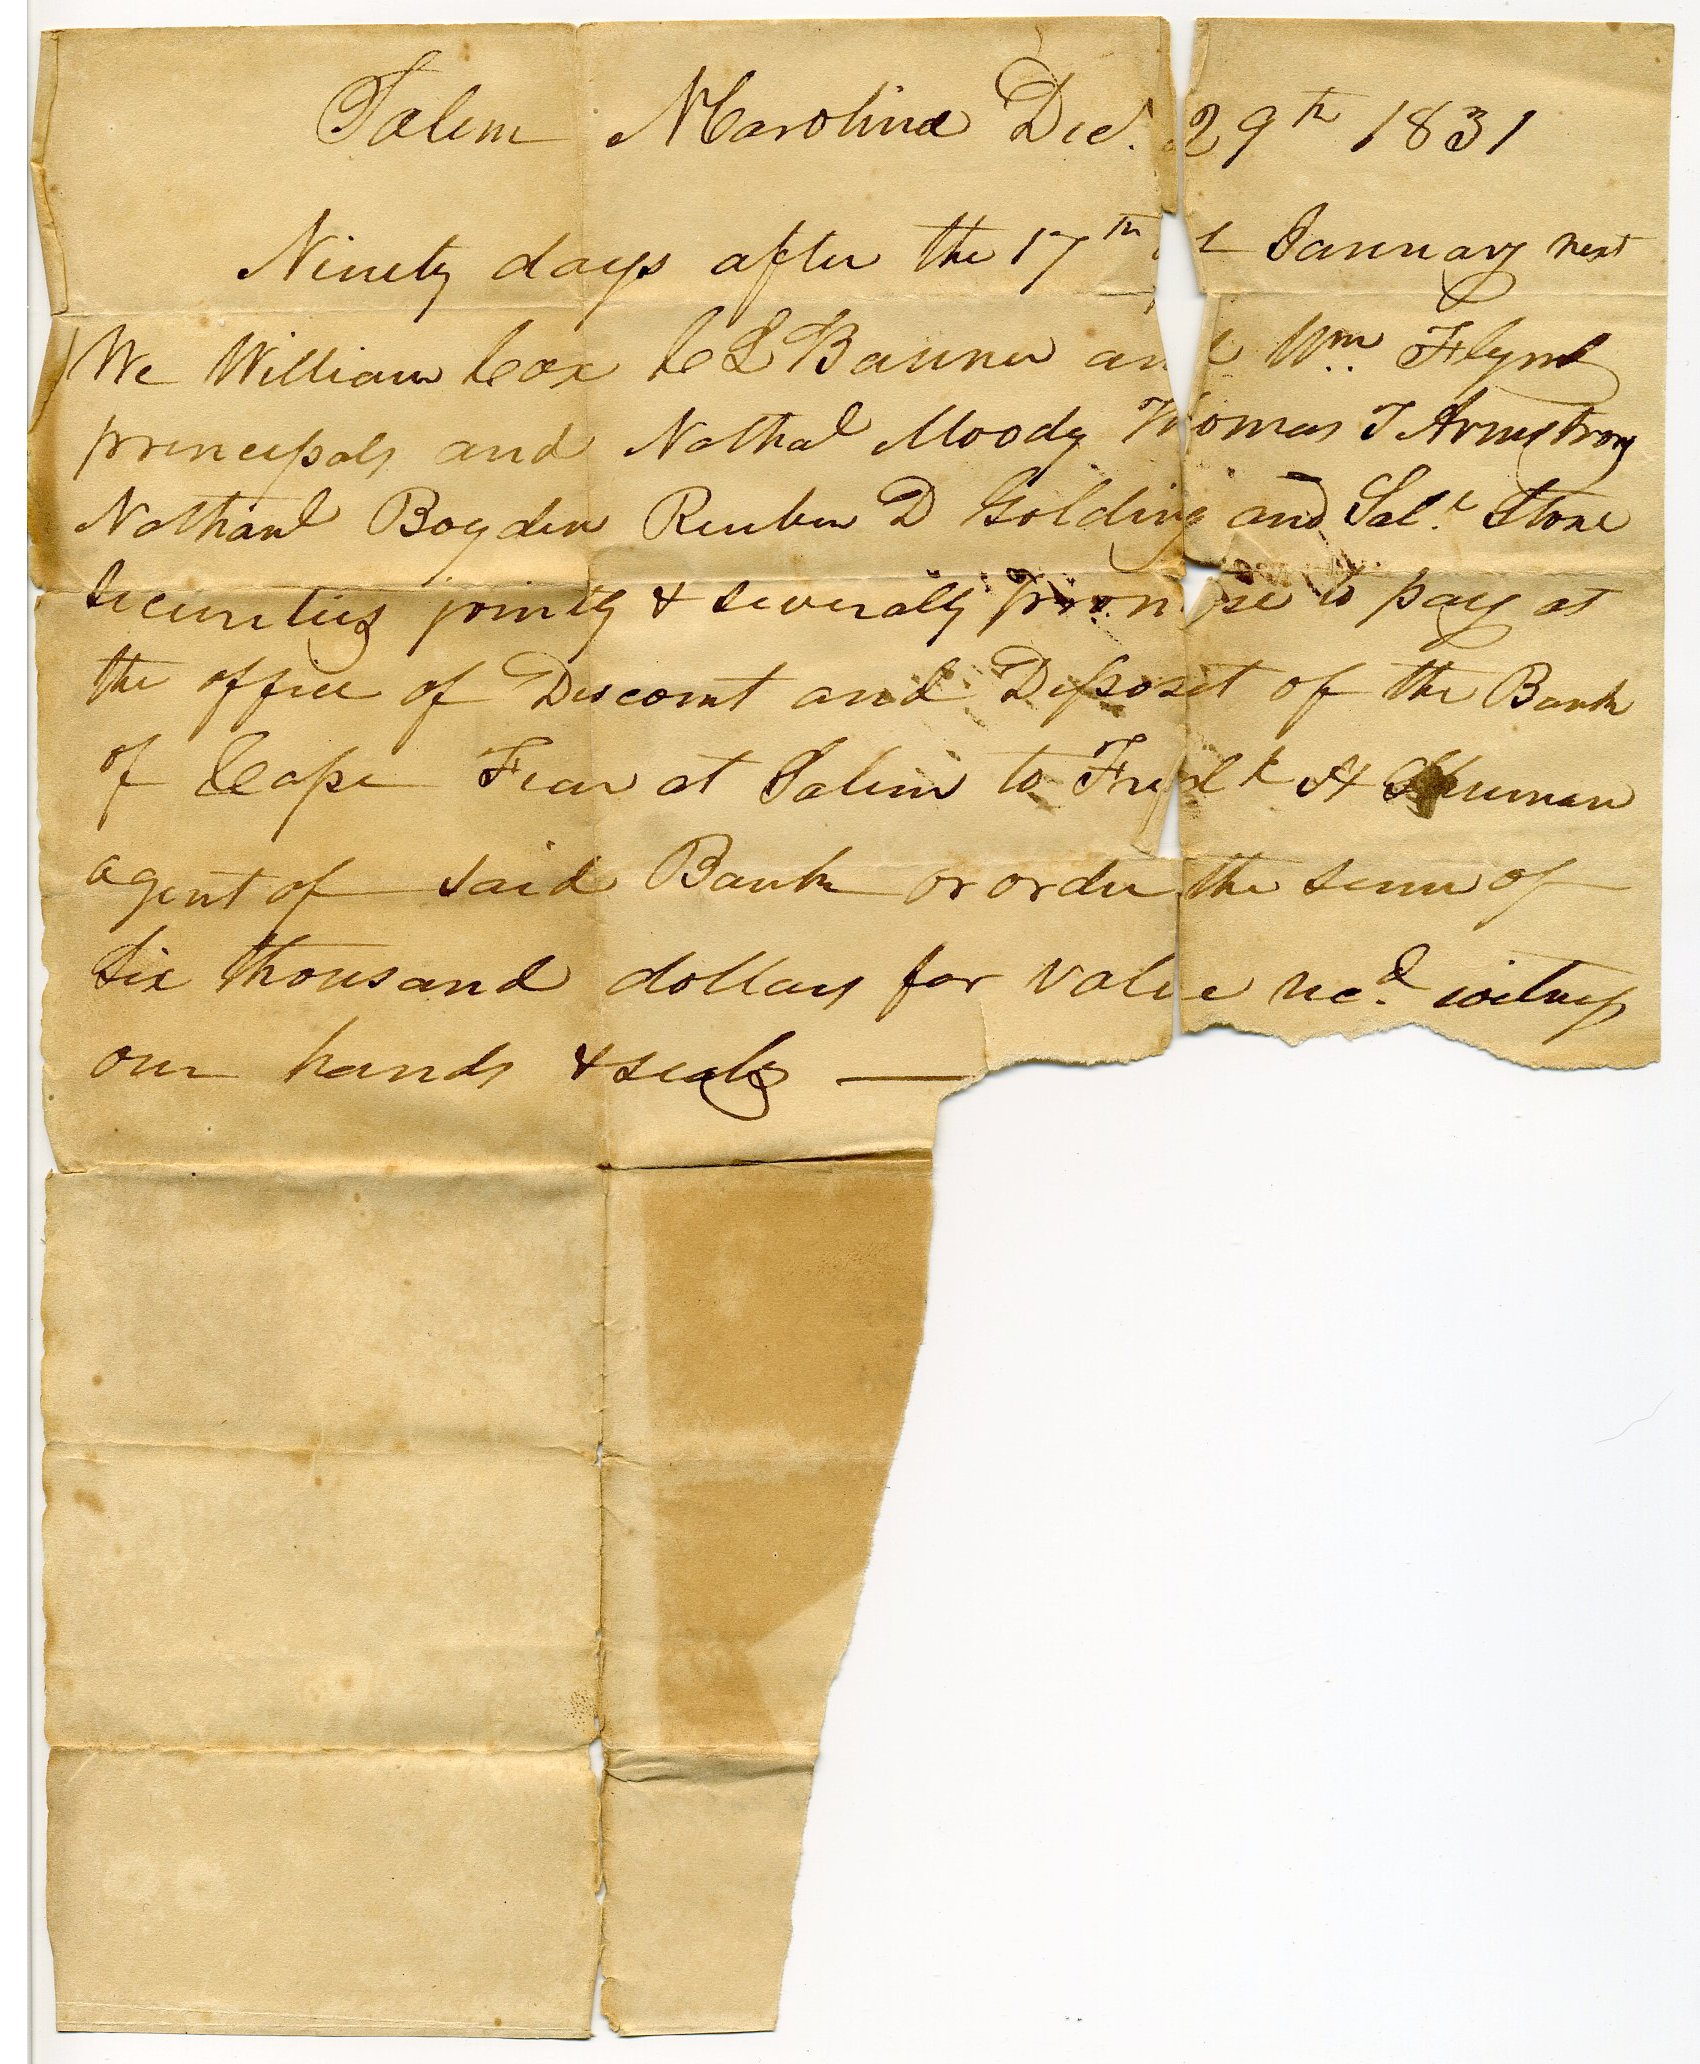 Salem N Carolina Dec. 29th 1831
Ninety days after the 17th of January next
We William Cox C L Banner and Wm. Flynt
principals and Nathal Moody Thomas T Armstrong
Nathanl Bogden Reuben D Golding and Sal. Stone
Securities jointly & severally promise to pay at
the office of Discount and Deposit of the Bank
of Cape Fear at Salem to Fredk H Shuman
agent of said Bank or order the sum of
Six thousand dollars for value recd. witness
our hands & seals —